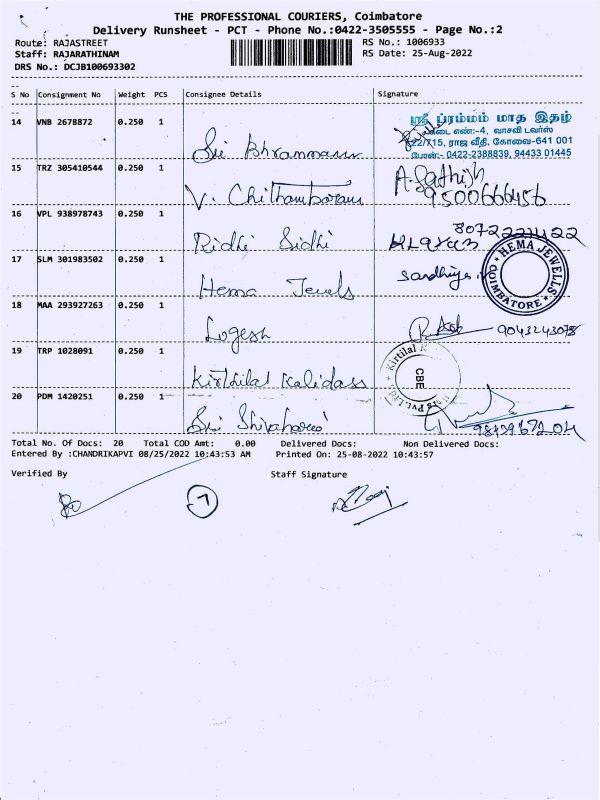 THE PROFESSIONAL COURIERS, Coimbatore
Delivery Runsheet - PCT - Phone No.:0422-3505555 - Page No.:2
Route: RAJASTREET
RS No.: 1006933
Staff: RAJARATHINAM
RS Date: 25-Aug-2022
DRS No.: DCJB100693302
S No Consignment No Weight PCS Consignee Details Signature
14 VNB 2678872 0.250 1 Sri
ஸ்ரீ ப்ரம்மம் மாத இதழ்
கடை எண்:-4, வாசவி டவர்ஸ்
822/715, ராஜ வீதி, கோவை-641 001
போன்:- 0422-2388839, 94433 01445
15 TRZ 305410544 0.250 1 V. Chithambaram A. Sathish
9500666456
16 VPL 938978743 0.250 1 Ridhi Sidhi
17 SLM 301983502 0.250 1 Hema Jewels Sandhiya
HEMA JEWELLS
COIMBATORE
18 MAA 293927263 0.250 1 Logesh 9043243078
19 TRP 1028091 0.250 1 Kirthilal Kalidass
Kirtilal
CBE
Pvt. Ltd.
20 PDM 1420251 0.250 1 Sri
Total No. Of Docs: 20 Total COD Amt: 0.00 Delivered Docs: Non Delivered Docs:
Entered By :CHANDRIKAPVI 08/25/2022 10:43:53 AM Printed On: 25-08-2022 10:43:57
Verified By Staff Signature
7